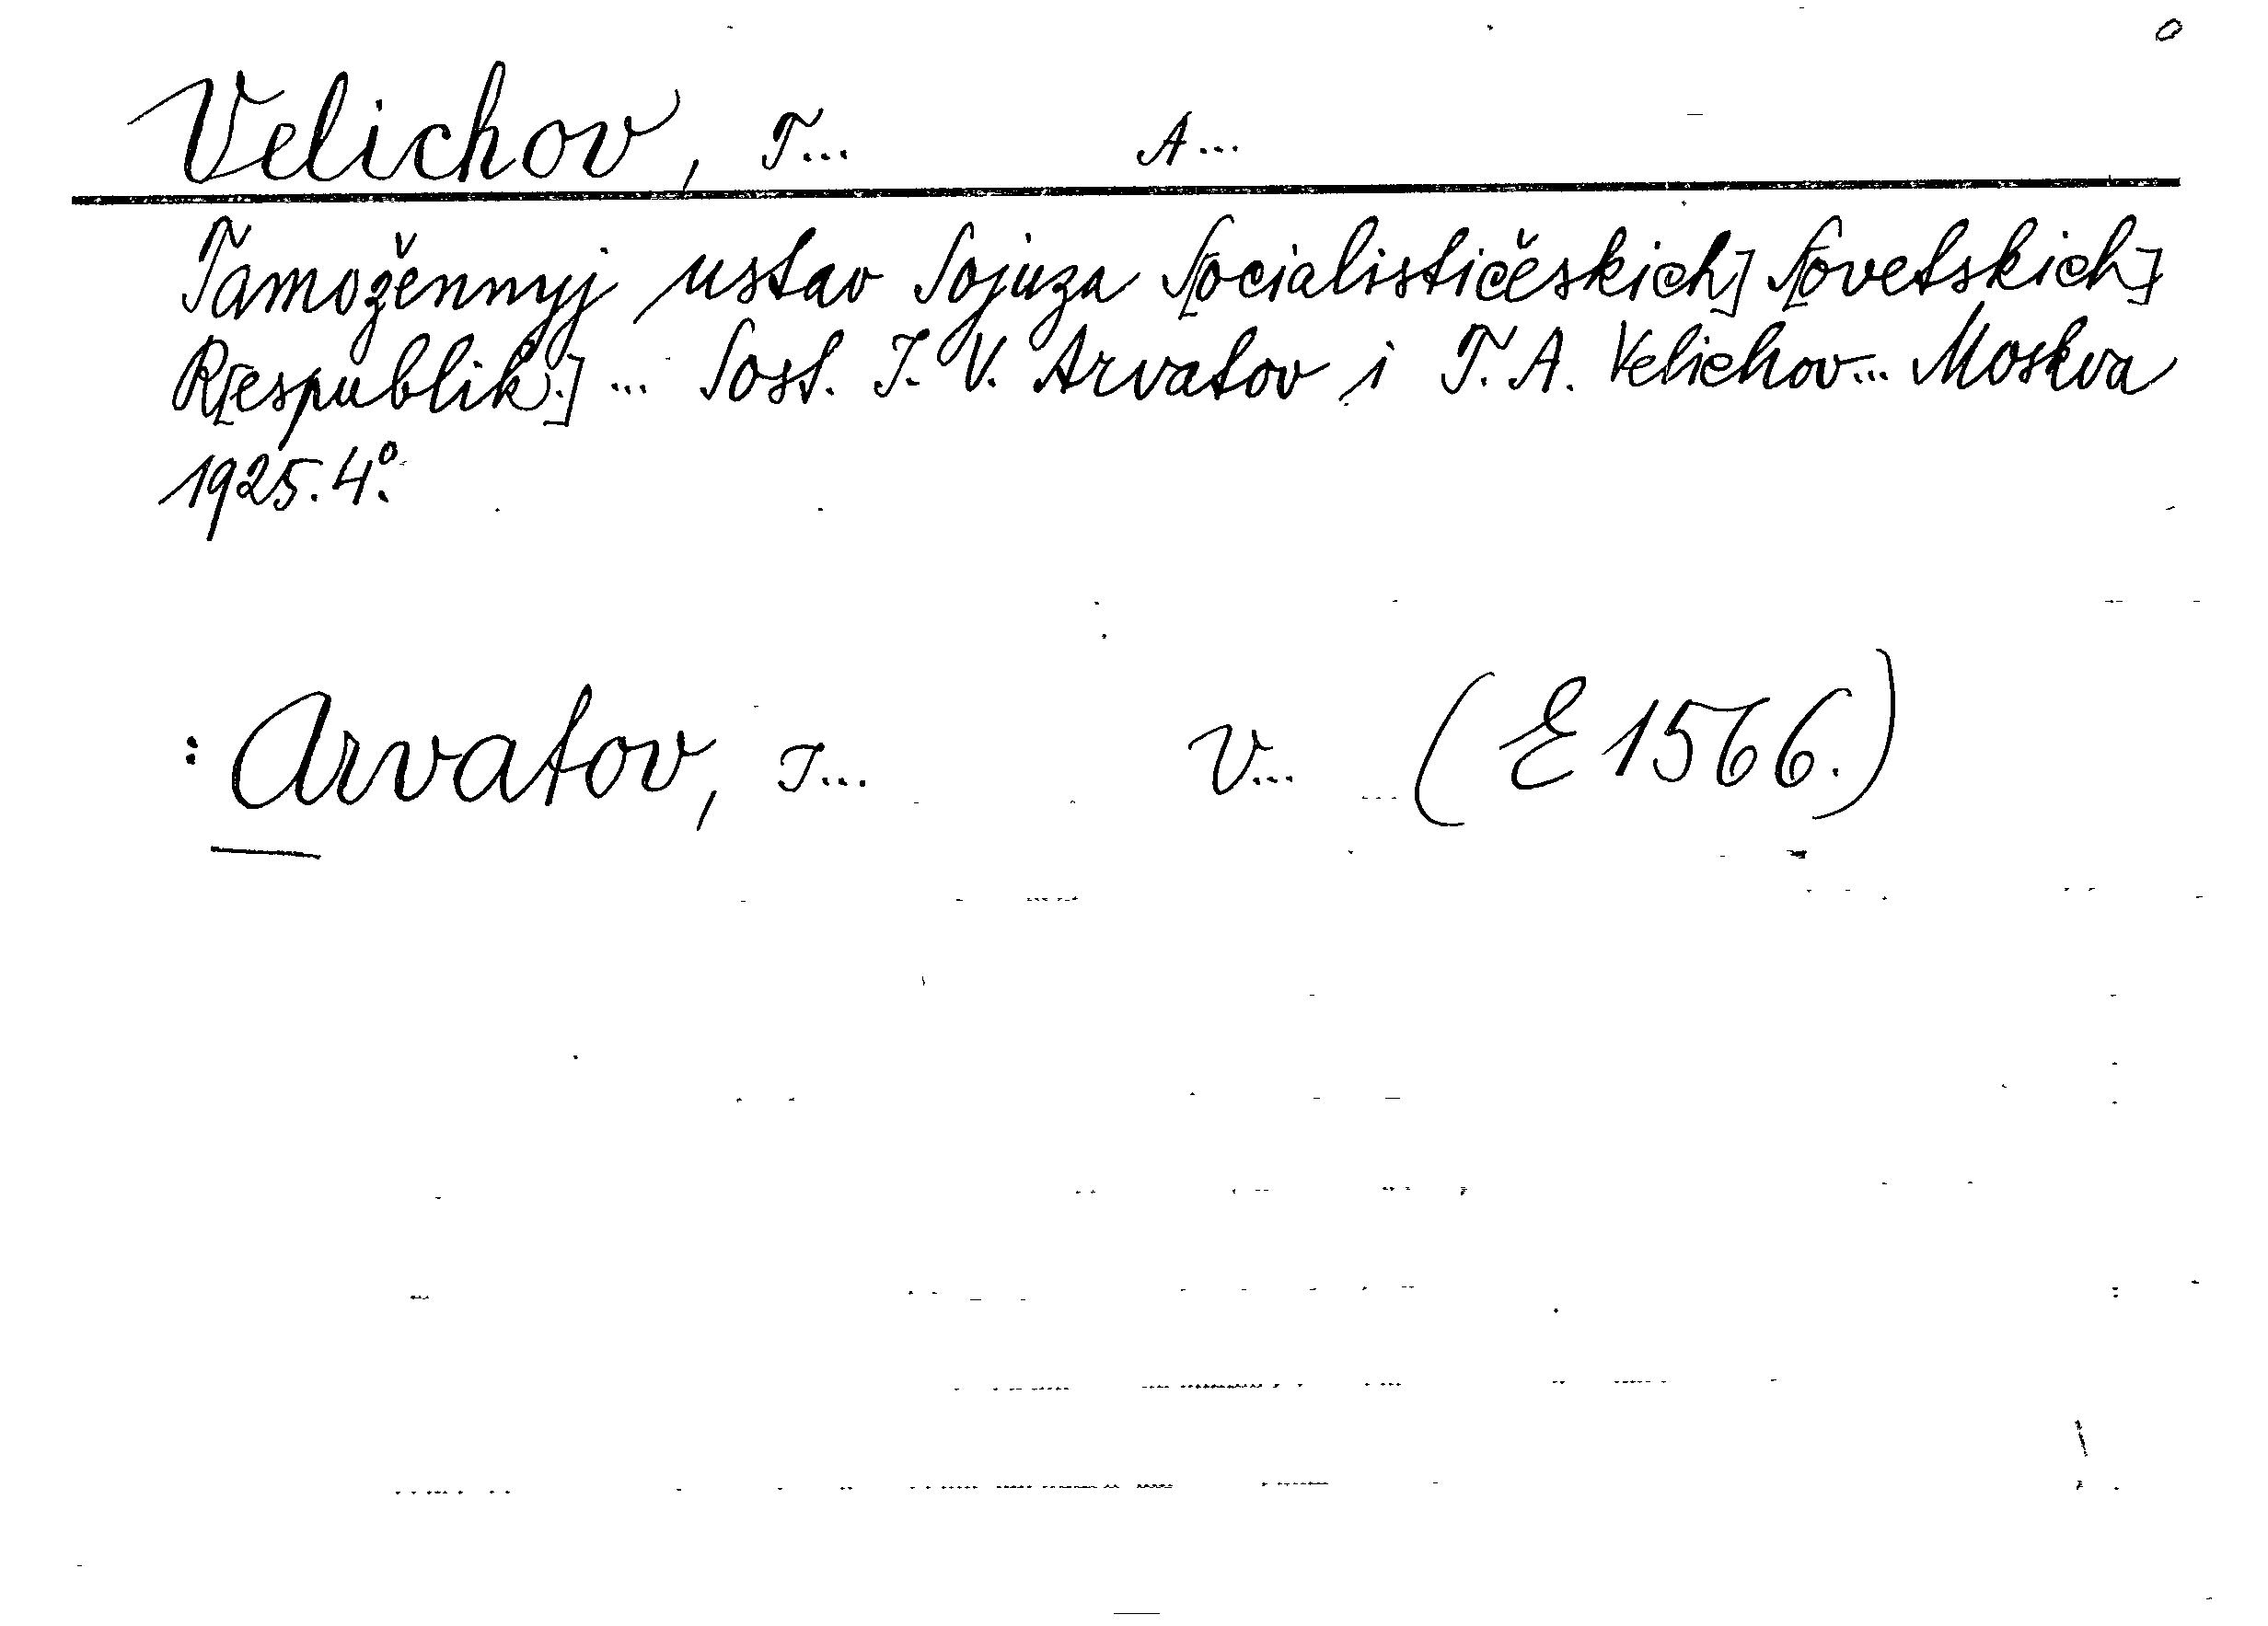 Velichov, T... A...
Tamožennyj ustav Sojuza S[ocialističeskich] S[ovetskich]
R[espublik.] ... Sost. I. V. Arvatov i T. A. Velichov... Moskva
1925. 4°.
: Arvatov, I... V... (E 1566.)